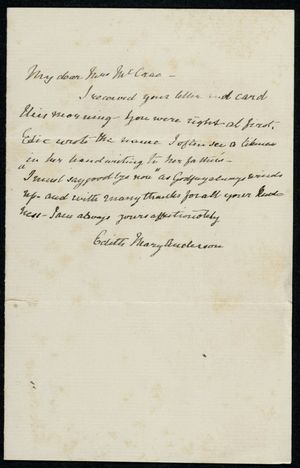 My dear Mrs McCrae –
I received your letter and card
this morning – You were right at first,
Edie wrote the name I often see a likeness
in her handwriting to her father's –
"I must say good bye now" as Godfrey always winds
up – and with many thanks for all your kind
ness – I am always yours affectionately
Edith Mary Anderson